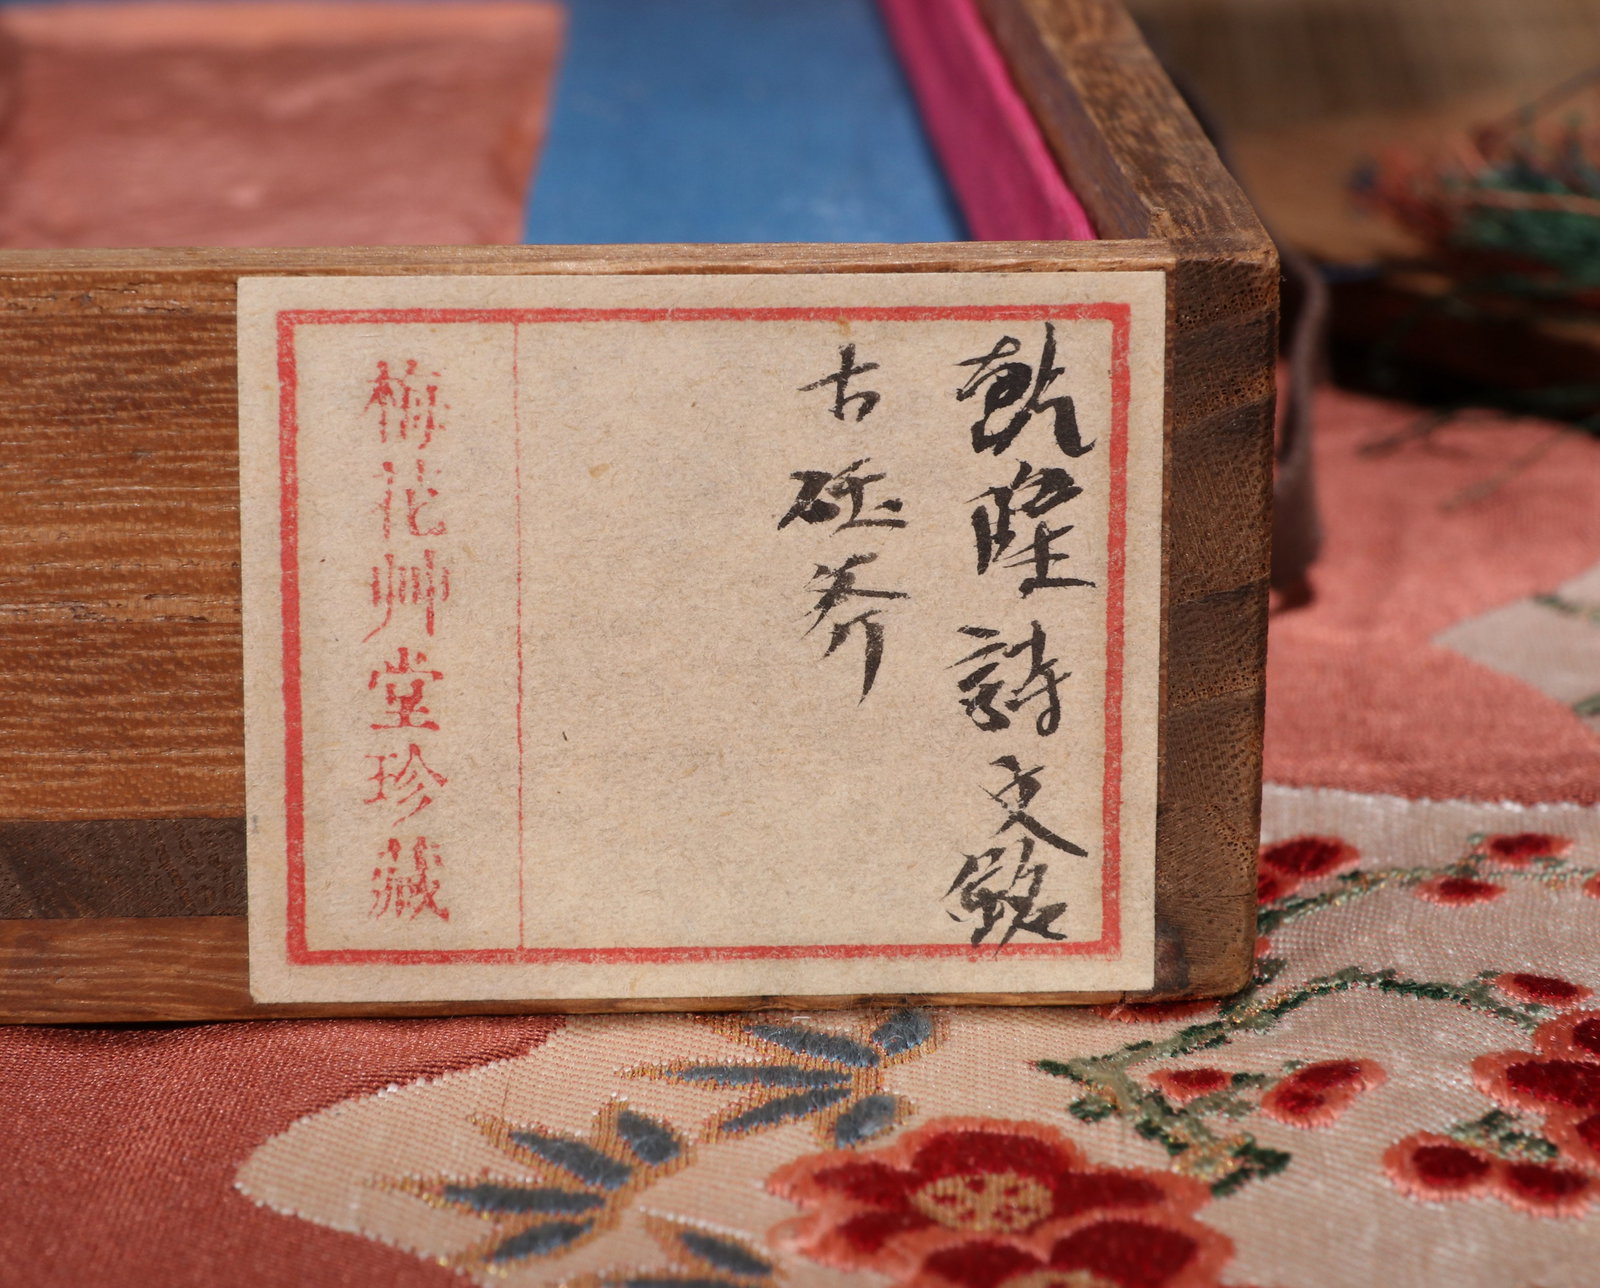 乾隆詩文銘
古砡斧
梅花艸堂珍藏